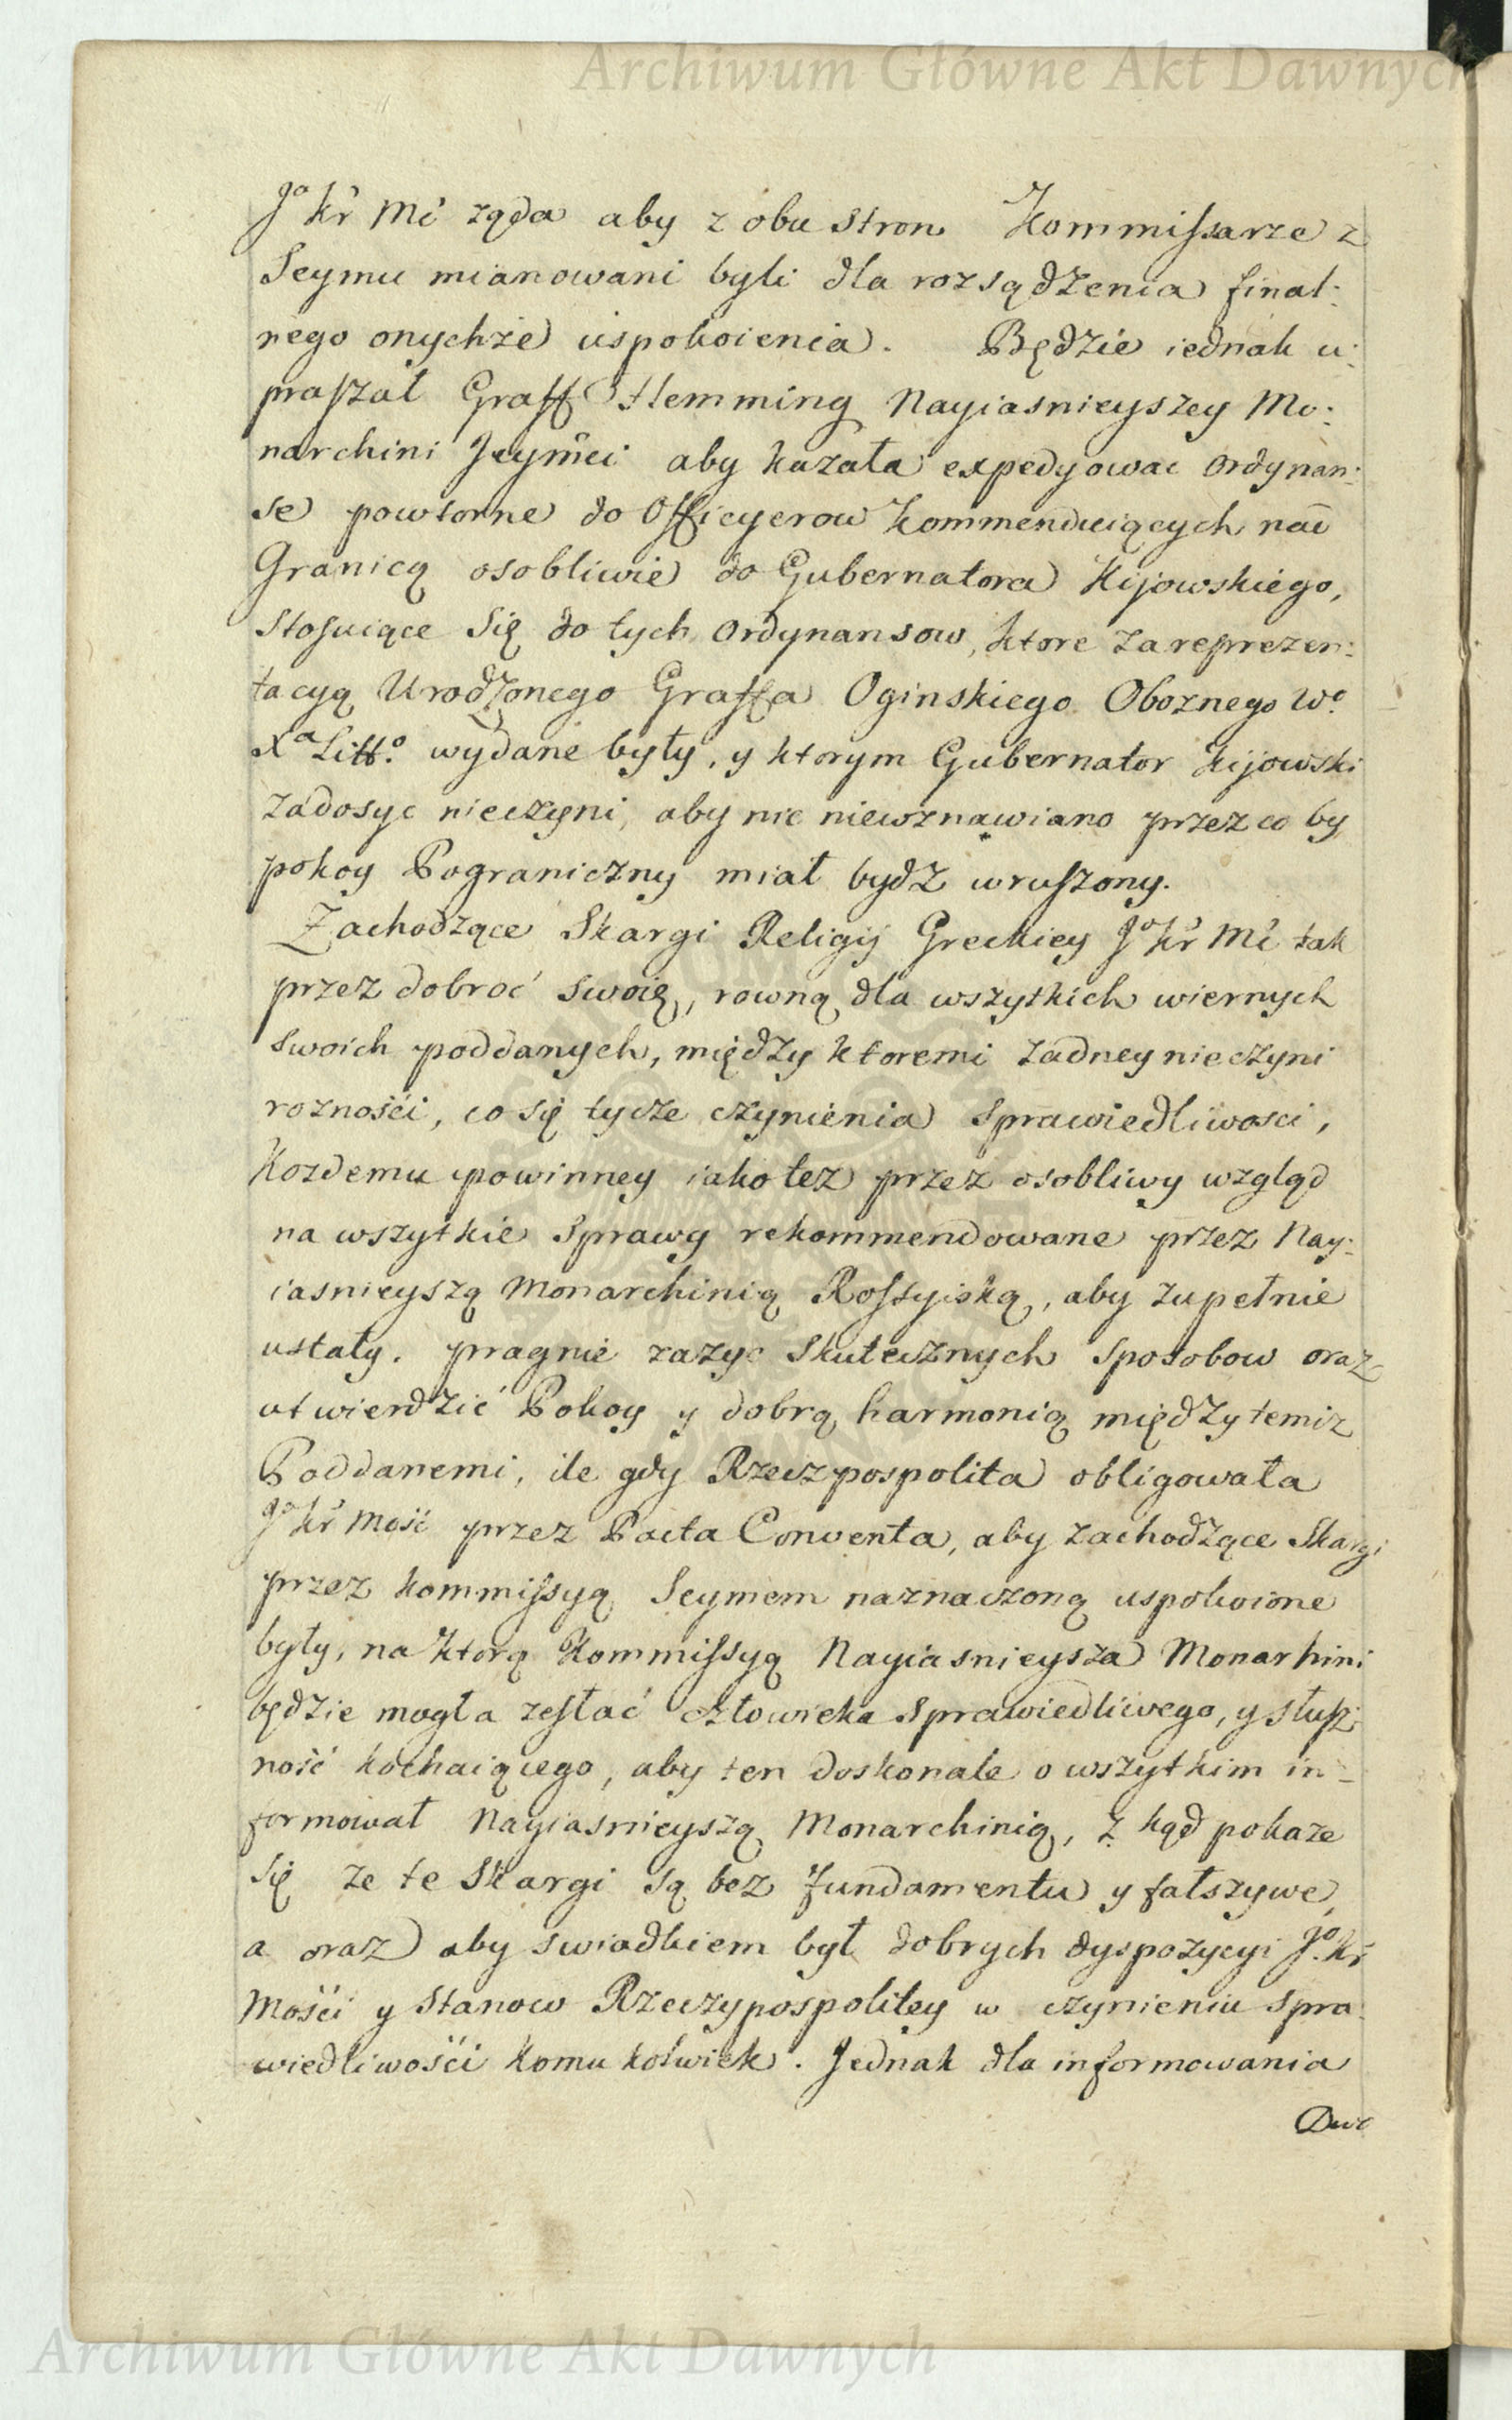 Archiwum Główne Akt Dawnych
Jo Kr Mć ząda aby z obu Stron Kommissarze z
Seymu mianowani byli dla rozsądzenia final:
nego onychże uspokoienia. Będzie iednak u:
praszał Graff Flemming Nayiasnieyszey Mo:
narchini Jeymci aby kazała expedyowac Ordynan:
se powtorne do Officyerow Kommenduiących nad
Granicą osobliwie do Gubernatora Kijowskiego,
Stosuiące Się do tych Ordynansow, ktore za reprezen:
tacyą Urodzonego Graffa Oginskiego Oboznego Wo
Xa Litto. wydane były, y ktorym Gubernator Kijowski
zadosyc nieczyni, aby nic niewznawiano przez co by
pokoy Pograniczny miał bydz wruszony.
Zachodzące Skargi Religij Greckiey Jo Kr Mć tak
przez dobroć swoię, rowną dla wszytkich wiernych
swoich poddanych, między ktoremi zadney nieczyni
roznośći, co się tycze czynienia Sprawiedliwosci,
Kozdemu powinney iako tez przez osobliwy wzgląd
na wszytkie Sprawy rekommendowane przez Nay:
iasnieyszą Monarchinią Rossyiską, aby zupełnie
ustały. pragnie zazyc Skutecznych Sposobow oraz
utwierdzić Pokoy y dobrą harmonią między temiz
Poddanemi, ile gdy Rzeczpospolita obligowała
Jo Kr Mość przez Pacta Conventa, aby zachodzące Skargi
przez kommissyą Seymem naznaczoną uspokoione
były, na ktorą Kommissyą Nayiasnieysza Monarhini
będzie mogła zesłać człowieka Sprawiedliwego, y słusz:
ność kochaiącego, aby ten doskonale o wszytkim in-
formował Nayiasnieyszą Monarchinią, z kąd pokaze
się ze te Skargi są bez fundamentu y fałszywe,
a oraz aby swiadkiem był dobrych dyspozycyi Jo. Kr
Mośći y Stanow Rzeczypospolitey w czynieniu Spra
wiedliwośći komu kolwiek. Jednak dla informowania
Dwo
Archiwum Główne Akt Dawnych